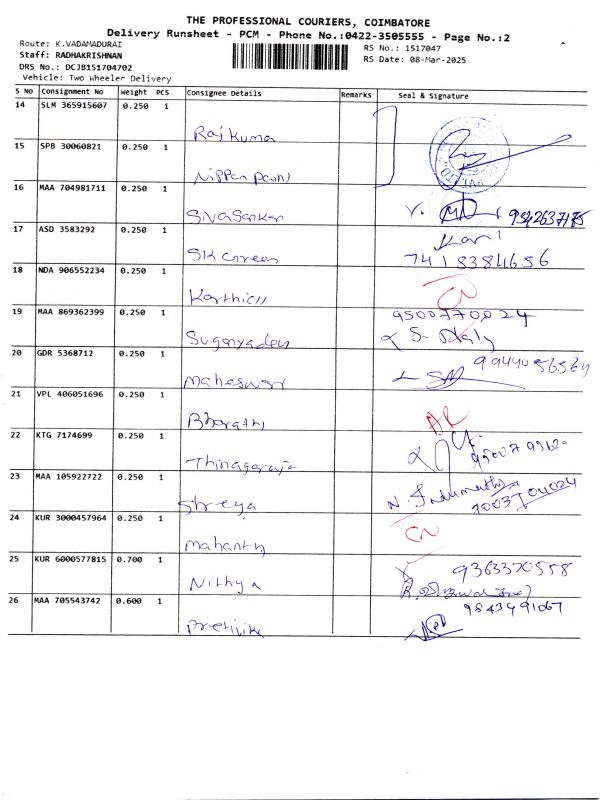 THE PROFESSIONAL COURIERS, COIMBATORE
Delivery Runsheet - PCM - Phone No.:0422-3505555 - Page No.:2
Route: K.VADAMADURAI
RS No.: 1517047
Staff: RADHAKRISHNAN
RS Date: 08-Mar-2025
DRS No.: DCJB151704702
Vehicle: Two Wheeler Delivery
S No Consignment No Weight PCS Consignee Details Remarks Seal & Signature
14 SLM 365915607 0.250 1
Raj kuma
15 SPB 30060821 0.250 1
Nippan paint
16 MAA 704981711 0.250 1
Sivasankar
17 ASD 3583292 0.250 1
SK Green 7418384656
18 NDA 906552234 0.250 1
Karthick
19 MAA 869362399 0.250 1 9500770024
Suganyadevi
20 GDR 5368712 0.250 1
Maheswari
21 VPL 406051696 0.250 1
Bharathi
22 KTG 7174699 0.250 1
Thinagaraja
23 MAA 105922722 0.250 1
Shreya
24 KUR 3000457964 0.250 1
Mahanth
25 KUR 6000577815 0.700 1 9363370558
Nithya
26 MAA 705543742 0.600 1 9843491067